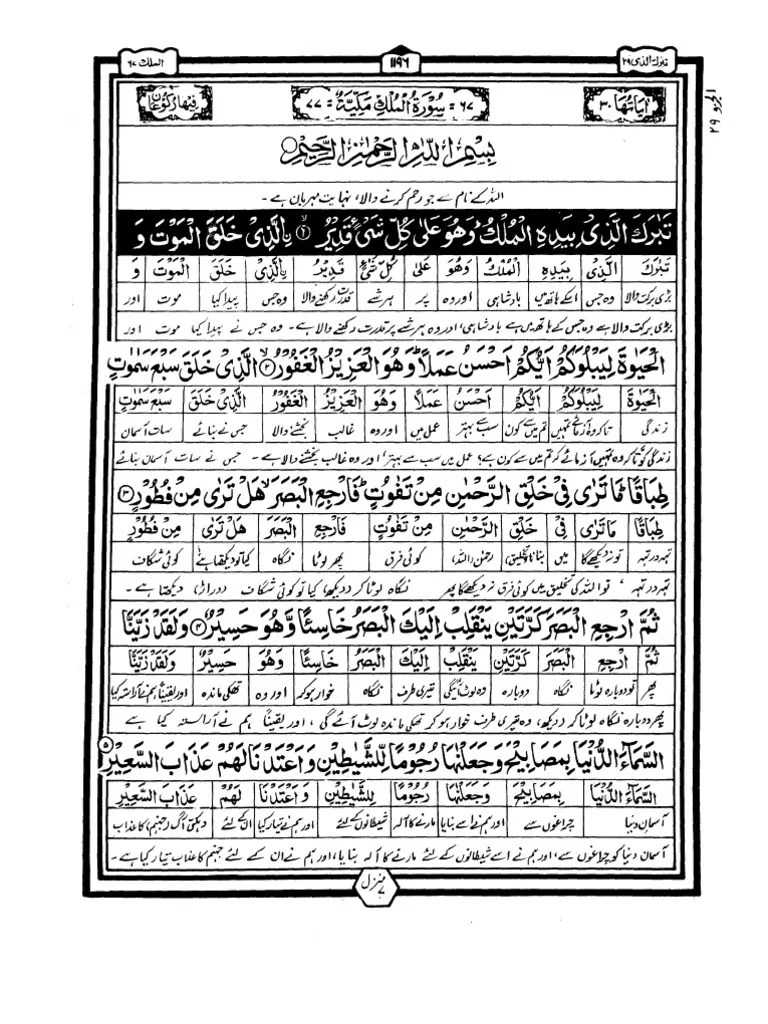 تبارك الذی ۲۹
۱۱۹۶
الملك ۶۷
اٰیاتها ۳۰
۶۷ = سُوْرَةُ الْمُلْكِ مَكِّیَّةٌ ۷۷
رکوعاتها
الجزء ۲۹
بِسْمِ اللّٰهِ الرَّحْمٰنِ الرَّحِیْمِ
اللہ کے نام سے جو رحم کرنے والا، نہایت مہربان ہے۔
تَبٰرَكَ الَّذِیْ بِیَدِهِ الْمُلْكُ وَهُوَ عَلٰی كُلِّ شَیْءٍ قَدِیْرُ ۙ الَّذِیْ خَلَقَ الْمَوْتَ وَ
تَبٰرَكَ الَّذِیْ بِیَدِهِ الْمُلْكُ وَهُوَ عَلٰی كُلِّ شَیْءٍ قَدِیْرُ الَّذِیْ خَلَقَ الْمَوْتَ وَ
بڑی برکت والا وہ جس اسکے ہاتھ میں بادشاہی اور وہ پر ہر شے قدرت رکھنے والا وہ جس پیدا کیا موت اور
بڑی برکت والا ہے وہ جس کے ہاتھ میں ہے بادشاہی، اور وہ ہر شے پر قدرت رکھنے والا ہے۔ وہ جس نے پیدا کیا موت اور
الْحَیٰوةَ لِیَبْلُوَكُمْ اَیُّكُمْ اَحْسَنُ عَمَلًا ؕ وَهُوَ الْعَزِیْزُ الْغَفُوْرُ ۙ۲ الَّذِیْ خَلَقَ سَبْعَ سَمٰوٰتٍ
الْحَیٰوةَ لِیَبْلُوَكُمْ اَیُّكُمْ اَحْسَنُ عَمَلًا وَهُوَ الْعَزِیْزُ الْغَفُوْرُ الَّذِیْ خَلَقَ سَبْعَ سَمٰوٰتٍ
زندگی تاکہ وہ آزمائے تمہیں تم میں سے کون سب سے بہتر عمل میں اور وہ غالب بخشنے والا جس نے بنائے سات آسمان
زندگی کو تاکہ وہ تمہیں آزمائے کہ تم میں سے کون ہے؟ عمل میں سب سے بہتر، اور وہ غالب بخشنے والا ہے۔ جس نے سات آسمان بنائے
طِبَاقًا ؕ مَا تَرٰی فِیْ خَلْقِ الرَّحْمٰنِ مِنْ تَفٰوُتٍ ؕ فَارْجِعِ الْبَصَرَ ۙ هَلْ تَرٰی مِنْ فُطُوْرٍ ۳
طِبَاقًا مَا تَرٰی فِیْ خَلْقِ الرَّحْمٰنِ مِنْ تَفٰوُتٍ فَارْجِعِ الْبَصَرَ هَلْ تَرٰی مِنْ فُطُوْرٍ
تہہ در تہہ تو نہ دیکھے گا میں بنانا (تخلیق) رحمٰن (اللہ) کوئی فرق پھر لوٹا نگاہ کیا تو دیکھتا ہے کوئی شگاف
تہہ در تہہ، تو اللہ کی تخلیق میں کوئی فرق نہ دیکھے گا پھر نگاہ لوٹا کر دیکھ، کیا تو کوئی شگاف (دراڑ) دیکھتا ہے۔
ثُمَّ ارْجِعِ الْبَصَرَ كَرَّتَیْنِ یَنْقَلِبْ اِلَیْكَ الْبَصَرُ خَاسِئًا وَّهُوَ حَسِیْرٌ ۴ وَلَقَدْ زَیَّنَّا
ثُمَّ ارْجِعِ الْبَصَرَ كَرَّتَیْنِ یَنْقَلِبْ اِلَیْكَ الْبَصَرُ خَاسِئًا وَّهُوَ حَسِیْرٌ وَلَقَدْ زَیَّنَّا
پھر تو دوبارہ لوٹا نگاہ دوبارہ وہ لوٹ آئیگی تیری طرف نگاہ خوار ہو کر اور وہ تھکی ماندہ اور یقیناً ہم نے آراستہ کیا
پھر دوبارہ نگاہ لوٹا کر دیکھ، وہ تیری طرف خوار ہو کر تھکی ماندہ لوٹ آئے گی، اور یقیناً ہم نے آراستہ کیا ہے
السَّمَآءَ الدُّنْیَا بِمَصَابِیْحَ وَجَعَلْنٰهَا رُجُوْمًا لِّلشَّیٰطِیْنِ وَاَعْتَدْنَا لَهُمْ عَذَابَ السَّعِیْرِ ۵
السَّمَآءَ الدُّنْیَا بِمَصَابِیْحَ وَجَعَلْنٰهَا رُجُوْمًا لِّلشَّیٰطِیْنِ وَاَعْتَدْنَا لَهُمْ عَذَابَ السَّعِیْرِ
آسمان دنیا چراغوں سے اور ہم نے اسے بنایا مارنے کا آلہ شیطانوں کے لئے اور ہم نے تیار کیا ان کے لئے دہکتی آگ (جہنم) کا عذاب
آسمان دنیا کو چراغوں سے، اور ہم نے اسے شیطانوں کے لئے مارنے کا آلہ بنایا، اور ہم نے ان کے لئے جہنم کا عذاب تیار کیا ہے۔
منزل ۷